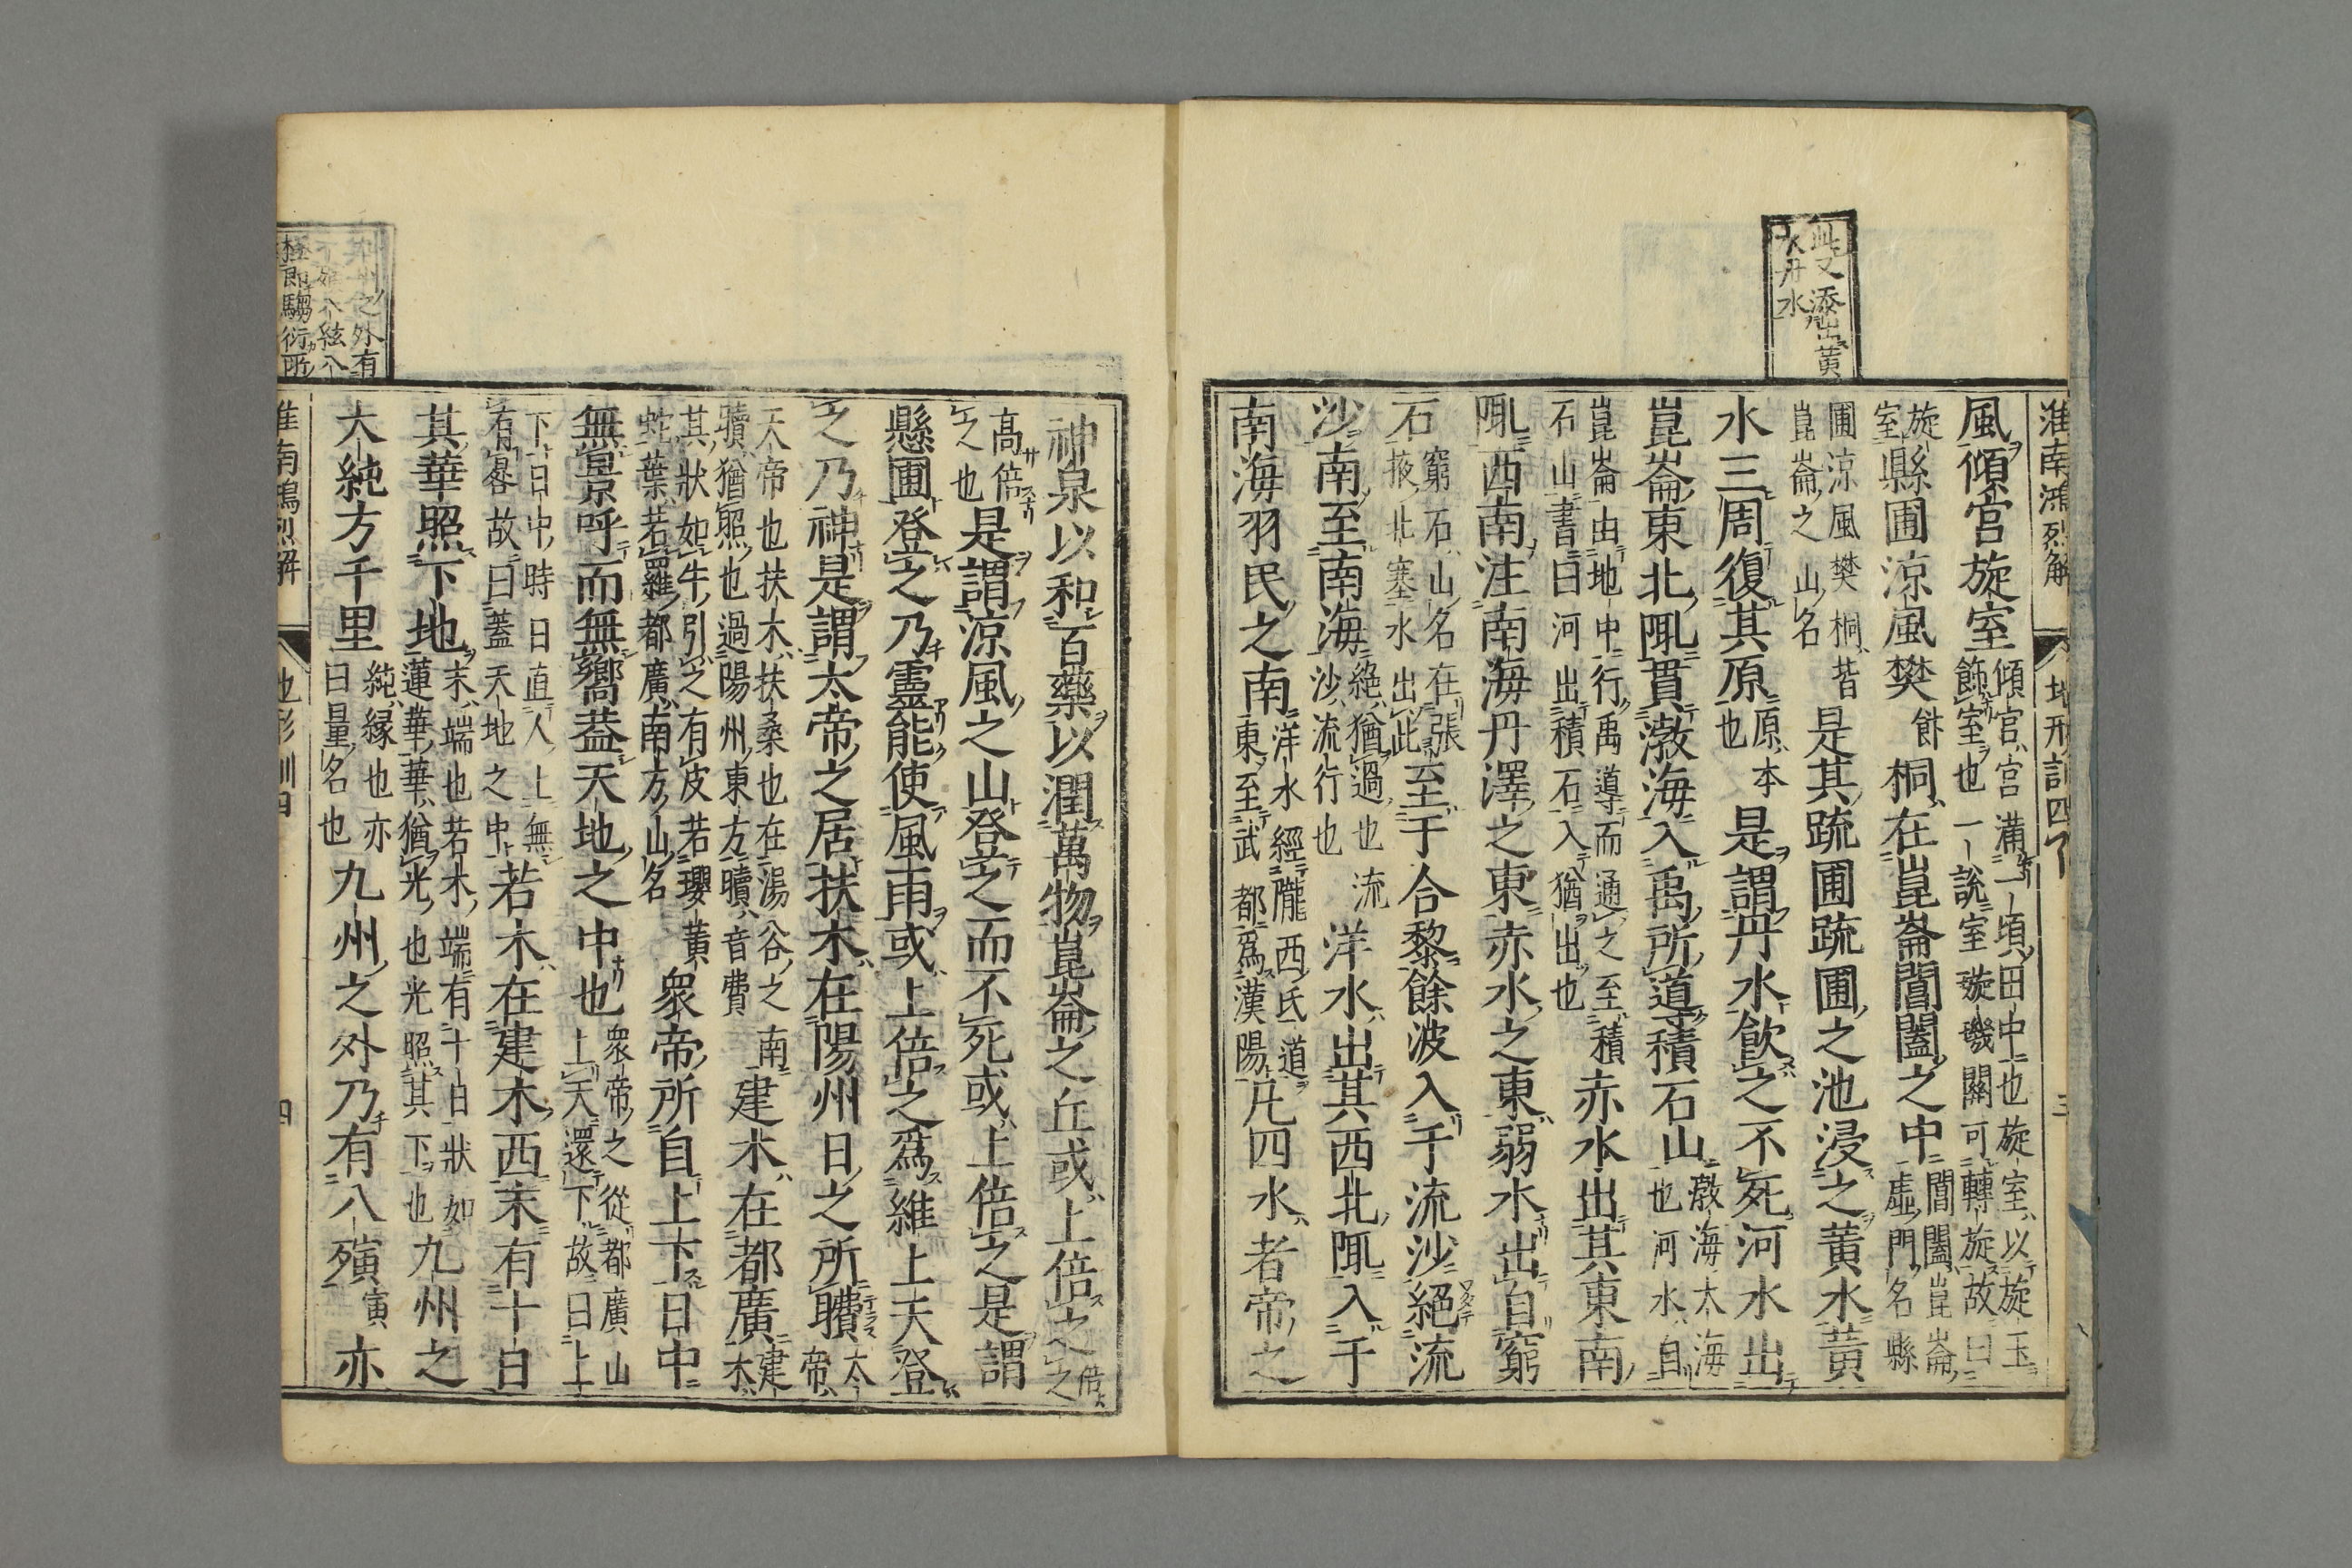 淮南鴻烈解 地形訓四 三
此又添出黄
水丹水
風傾宮旋室傾宮宮滿一頃田中也旋室以旋玉飾室也一說室旋機關可轉旋故曰
旋室縣圃涼風樊飰桐在崑崙閶闔之中閶闔崑崙虛門名縣
圃涼風樊桐皆崑崙之山名是其疏圃疏圃之池浸之黄水黄
水三周復其原原本也是謂丹水飲之不死河水出
崑崙東北陬貫渤海入禹所導積石山渤海大海也河水自
崑崙由地中行禹導而通之至積石山書曰河出積石入猶出也赤水出其東南
陬西南注南海丹澤之東赤水之東弱水出自窮
石窮石山名在張掖北塞水出此至于合黎餘波入于流沙絕流
沙南至南海絕猶過也流沙流行也洋水出其西北陬入于
南海羽民之南洋水經隴西氐道東至武都爲漢陽凡四水者帝之
神泉以和百藥以潤萬物崑崙之丘或上倍之倍之
高倍之也是謂涼風之山登之而不死或上倍之是謂
懸圃登之乃靈能使風雨或上倍之爲維上天登
之乃神是謂太帝之居扶木在陽州日之所曊太帝
天帝也扶木扶桑也在湯谷之南曊猶照也過陽州東方曊音費建木在都廣建木
其狀如牛引之有皮若瓔黄蛇葉若羅都廣南方山名衆帝所自上下日中
無景呼而無嚮蓋天地之中也衆帝之從都廣山上天還下故曰上
下日中時日直人上無景晷故曰蓋天地之中若木在建木西末有十日
其華照下地末端也若木端有十日狀如蓮華華猶光也光照其下也九州之
大純方千里純緣也亦曰量名也九州之外乃有八殥寅亦
九州之外有
八紘八
極即騶衍所
淮南鴻烈解 地形訓四 四